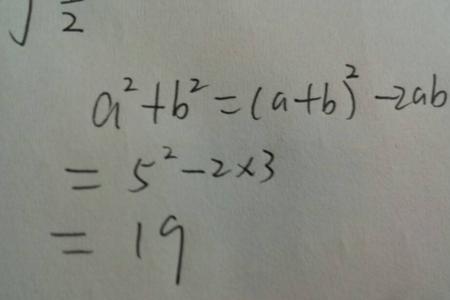 2
a²+b²=(a+b)²-2ab
=5²-2×3
=19